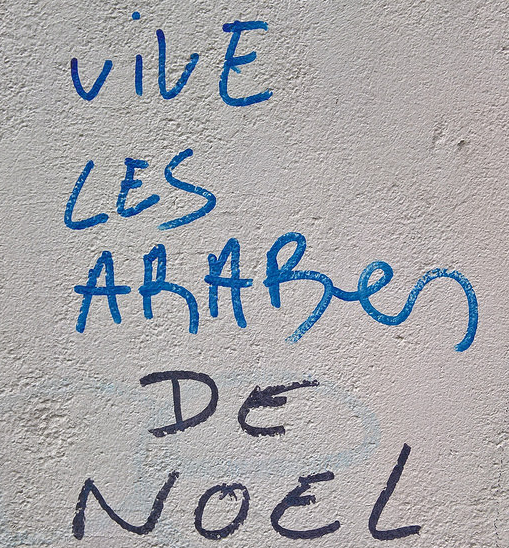 ViVE
LES
ARABes
DE
NOEL